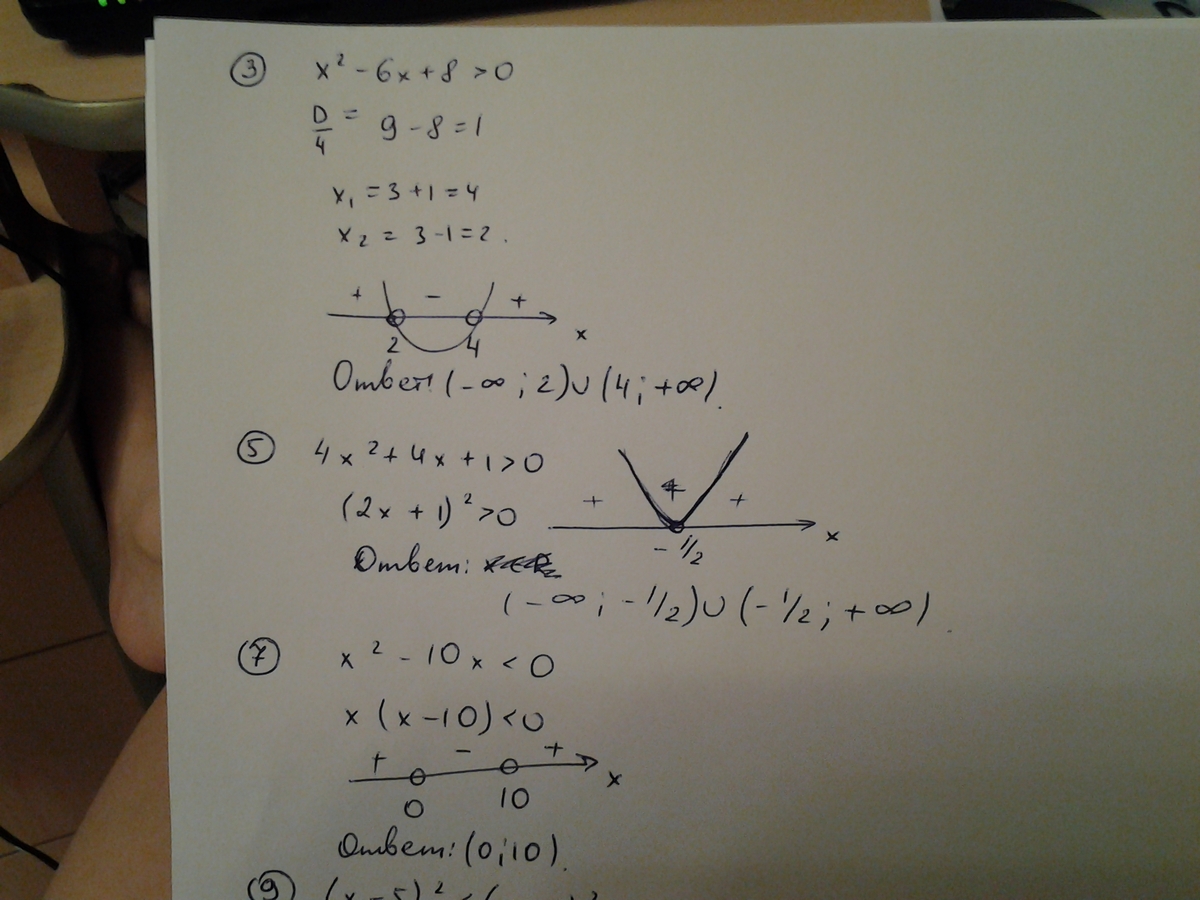 ③ x² - 6x + 8 > 0
D/4 = 9 - 8 = 1
x₁ = 3 + 1 = 4
x₂ = 3 - 1 = 2.
+ - +
2 4 x
Ответ: (-∞; 2)∪(4; +∞).
⑤ 4x² + 4x + 1 > 0
(2x + 1)² > 0
+ + +
-1/2 x
Ответ:
(-∞; -1/2)∪(-1/2; +∞).
⑦ x² - 10x < 0
x(x - 10) < 0
+ - +
0 10 x
Ответ: (0; 10).
⑨ (x - 5)²